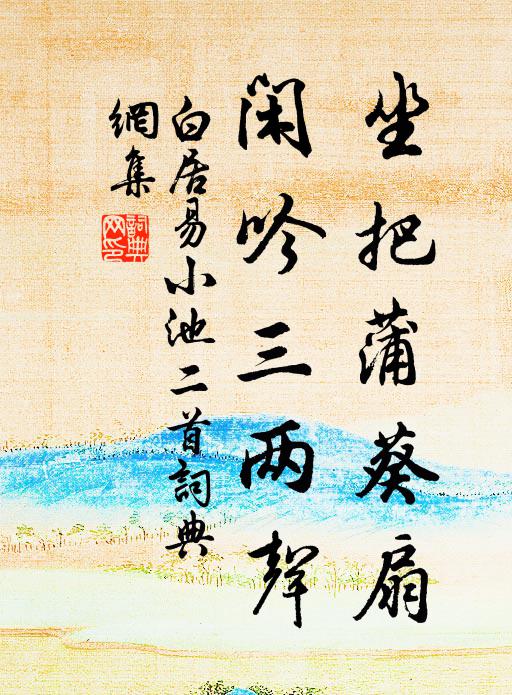 坐把蒲葵扇
闲吟三两聲
白居易小池二首詞典
網集
詞典
网印